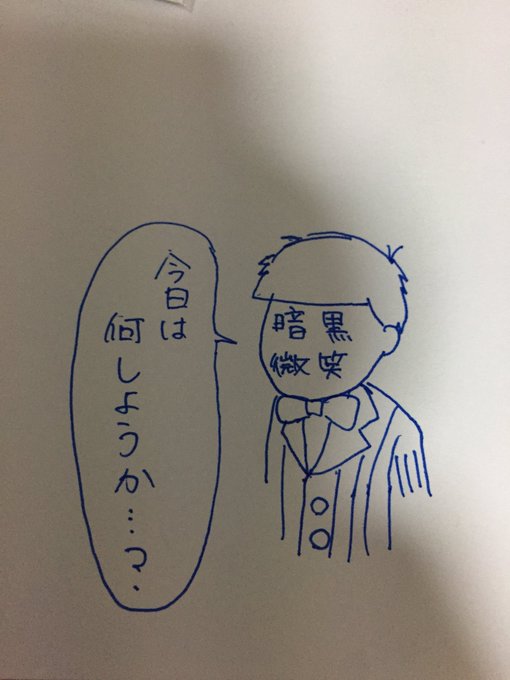 今日は
何しようか…?
暗黒
微笑